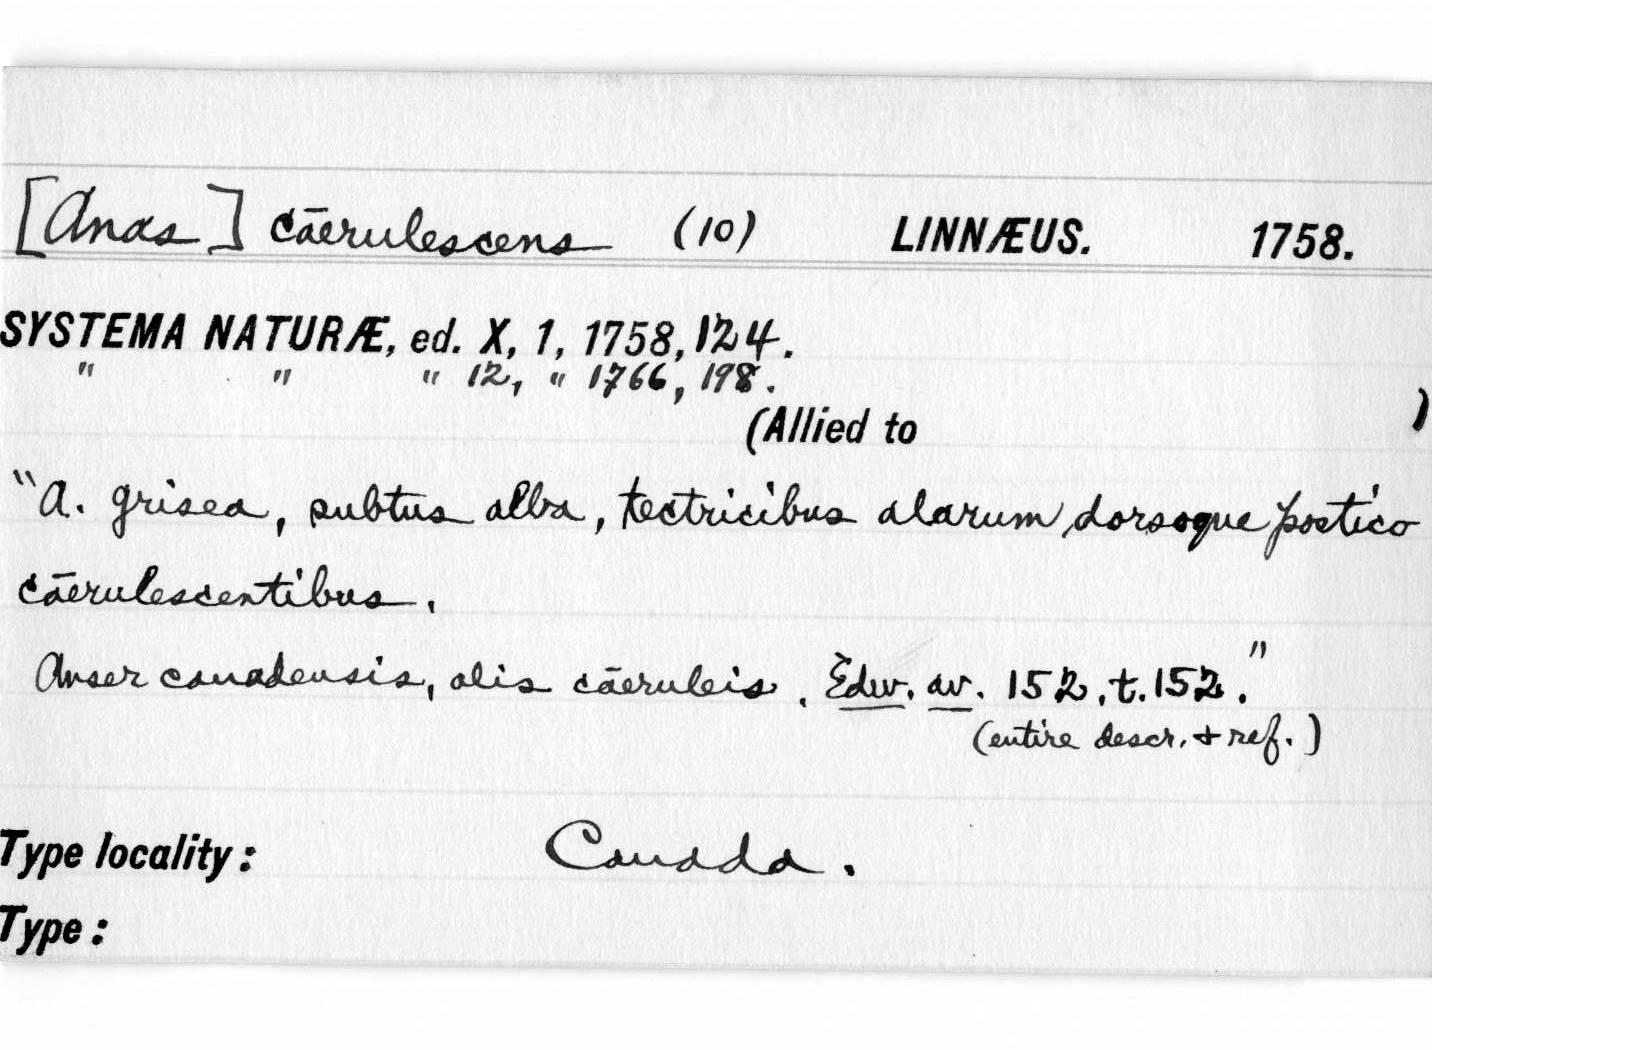 [Anas] cāerulescens (10) LINNÆUS. 1758.
SYSTEMA NATURÆ, ed. X, 1, 1758, 124.
" " " 12, " 1766, 198.
(Allied to )
"A. grisea, subtus alba, tectricibus alarum dorsoque postico
cāerulescentibus.
Anser canadensis, alis cāeruleis. Edw. av. 152, t. 152."
(entire descr. & ref.)
Type locality: Canada.
Type: